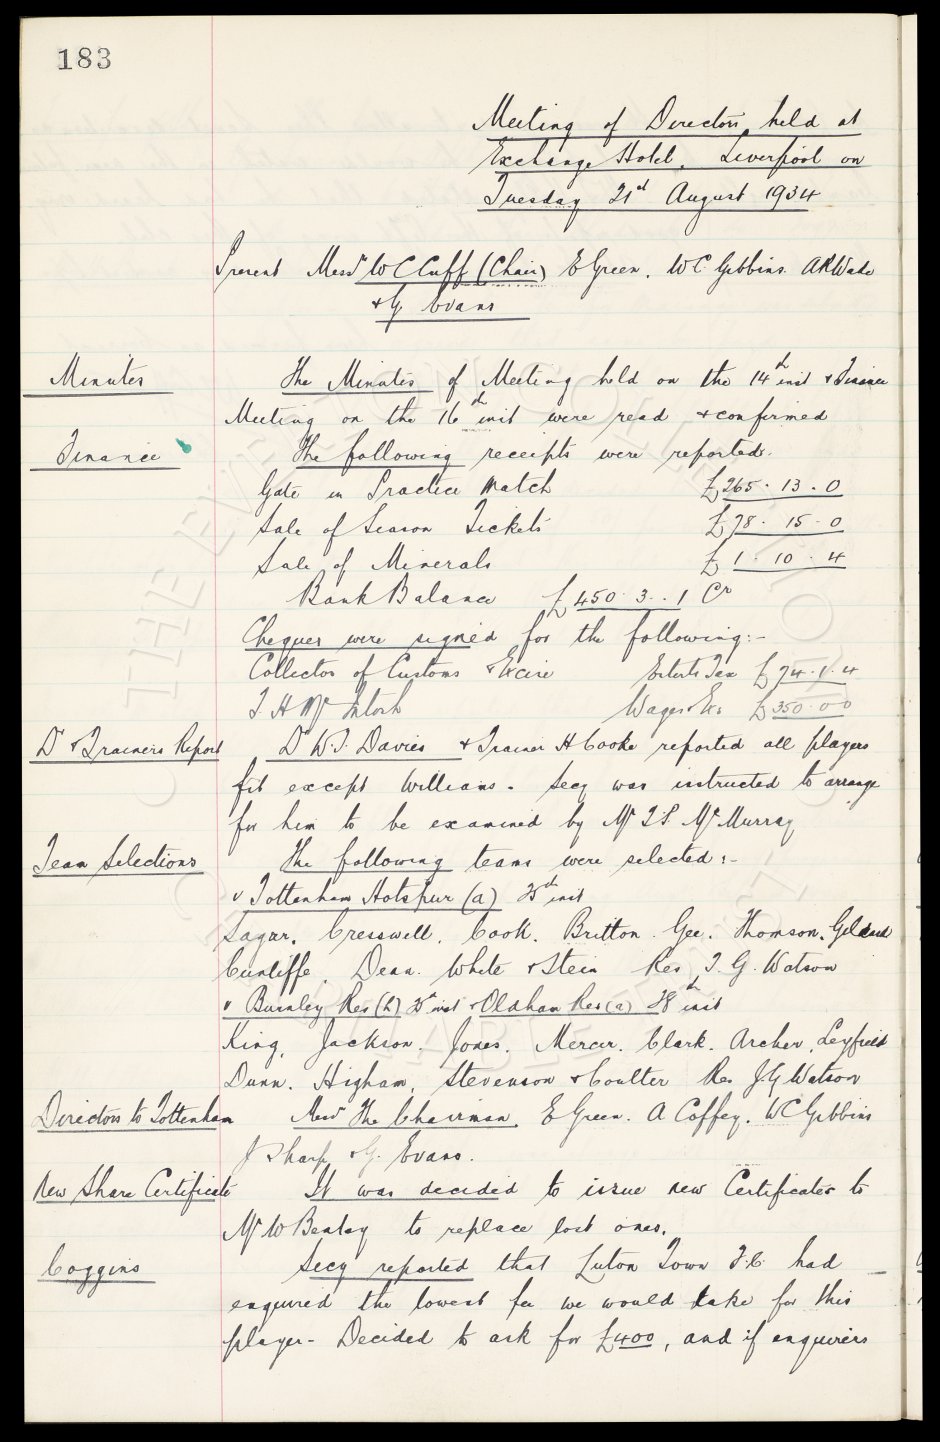 183
Meeting of Directors held at
Exchange Hotel, Liverpool on
Tuesday 21st August 1934
Present Messrs W C Cuff (Chair) E Green, W C Gibbins. A R Wade
+ G. Evans
Minutes The Minutes of Meeting held on the 14th inst + Finance
Meeting on the 16th inst were read + confirmed
Finance The following receipts were reported.
Gate in Practice Match £265 . 13 . 0
Sale of Season Tickets £78 . 15 . 0
Sale of Minerals £1 . 10 . 4
Bank Balance £450 . 3 . 1 Cr
Cheques were signed for the following:-
Collector of Customs + Excise Enterts Tax £74 . 1 . 4
T. H. Mc Intosh Wages + Exs £350 . 0 0
Dr + Trainers Report Dr W. T. Davies + Trainer H Cooke reported all players
fit except Williams. Secy was instructed to arrange
for him to be examined by Mr T P McMurray
Team Selections The following teams were selected:-
v Tottenham Hotspur (a) 25th inst
Sagar. Cresswell. Cook. Britton. Gee. Thomson. Geldard
Cunliffe, Dean. White + Stein Res T. G. Watson
v Burnley Res (h) 25th inst + Oldham Res (a) 28th inst
King, Jackson. Jones. Mercer. Clark. Archer, Leyfield
Dunn. Higham, Stevenson + Coulter Res J. G Watson
Directors to Tottenham Messrs The Chairman, E Green. A Coffey. W C Gibbins
J Sharp + G. Evans.
New Share Certificate It was decided to issue new Certificates to
Mr W Benlay to replace lost ones.
Coggins Secy reported that Luton Town F.C. had
enquired the lowest fee we would take for this
player - Decided to ask for £400, and if enquiries
THE EVERTON FOOTBALL CLUB